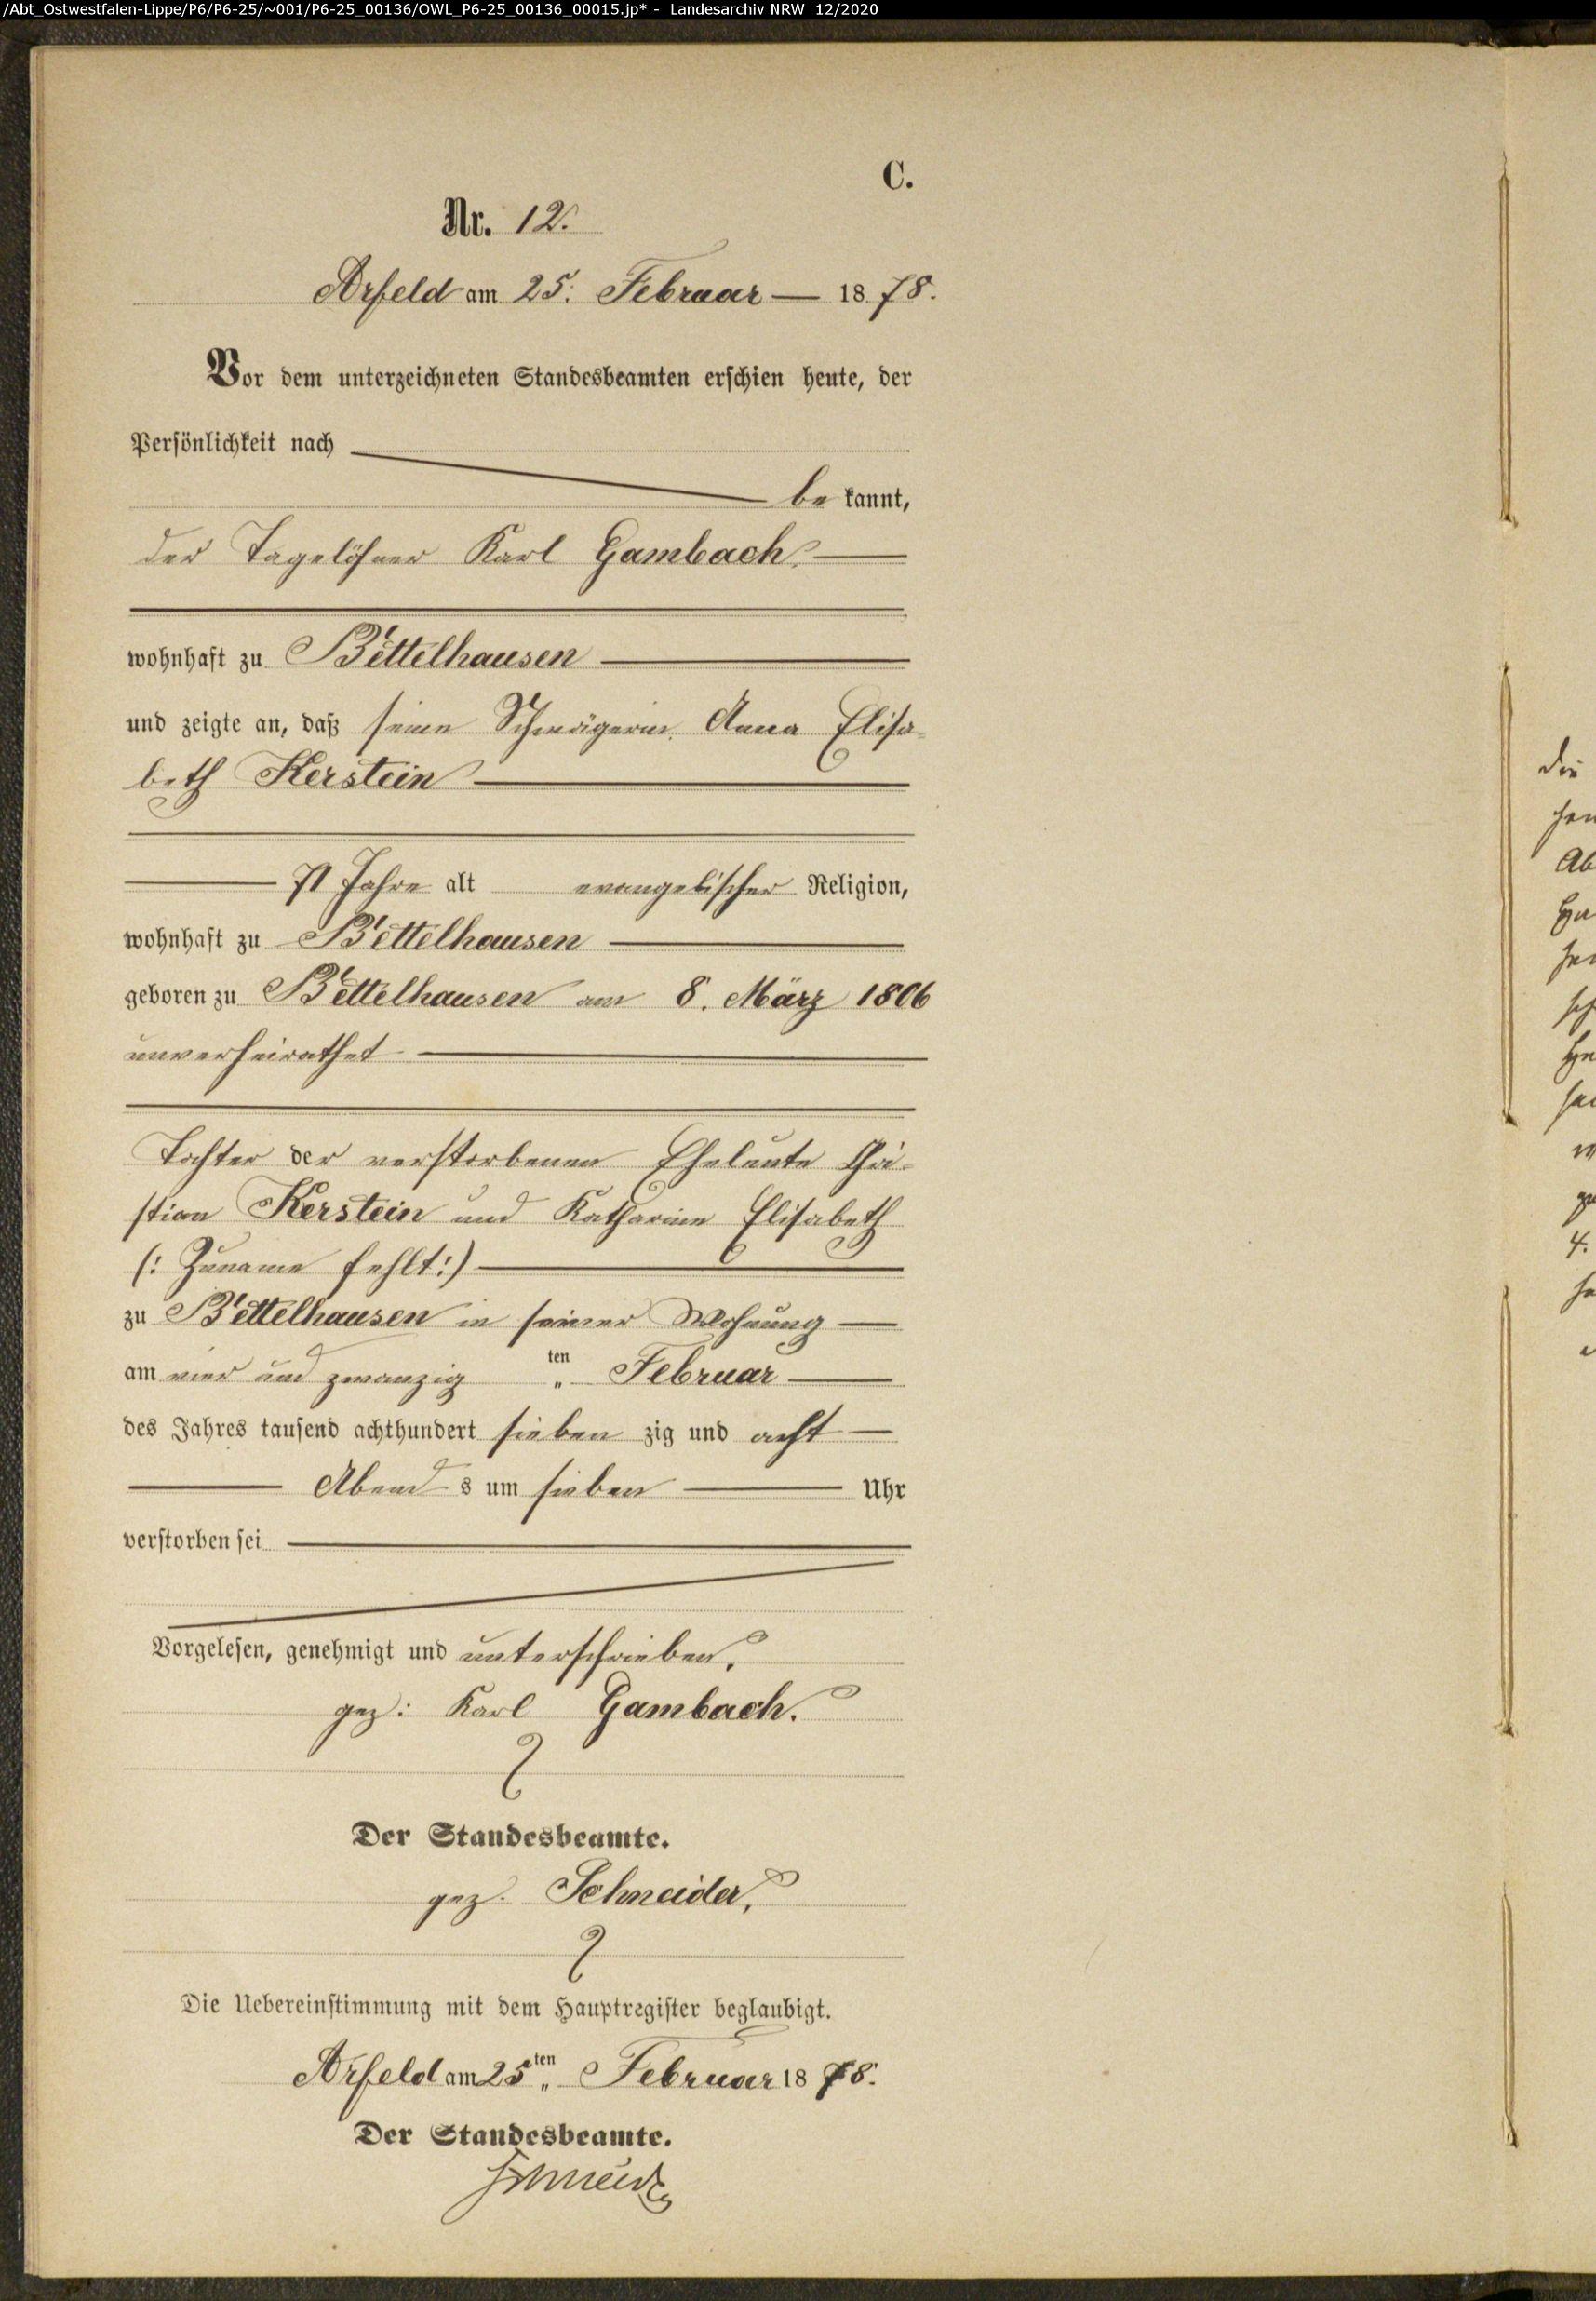 /Abt_Ostwestfalen-Lippe/P6/P6-25/~001/P6-25_00136/OWL_P6-25_00136_00015.jp* - Landesarchiv NRW 12/2020
C.
Nr. 12.
Arfeld am 25. Februar 1878.
Vor dem unterzeichneten Standesbeamten erschien heute, der
Persönlichkeit nach
be kannt,
der Tagelöhner Karl Gambach.
wohnhaft zu Bettelhausen
und zeigte an, daß seine Schwägerin, Anna Elisa-
beth Kerstein
71 Jahre alt evangelischer Religion,
wohnhaft zu Bettelhausen
geboren zu Bettelhausen am 8. März 1806
unverheirathet
Tochter der verstorbenen Eheleute Chri-
stian Kerstein und Katharine Elisabeth
(: Zuname fehlt:)
zu Bettelhausen in seiner Wohnung
am vier und zwanzig ten „ Februar
des Jahres tausend achthundert sieben zig und acht
Abend s um sieben Uhr
verstorben sei
Vorgelesen, genehmigt und unterschrieben.
gez: Karl Gambach.
Der Standesbeamte.
gez. Schneider,
Die Uebereinstimmung mit dem Hauptregister beglaubigt.
Arfeld am 25 ten „ Februar 1878.
Der Standesbeamte.
Schneider
die
4.